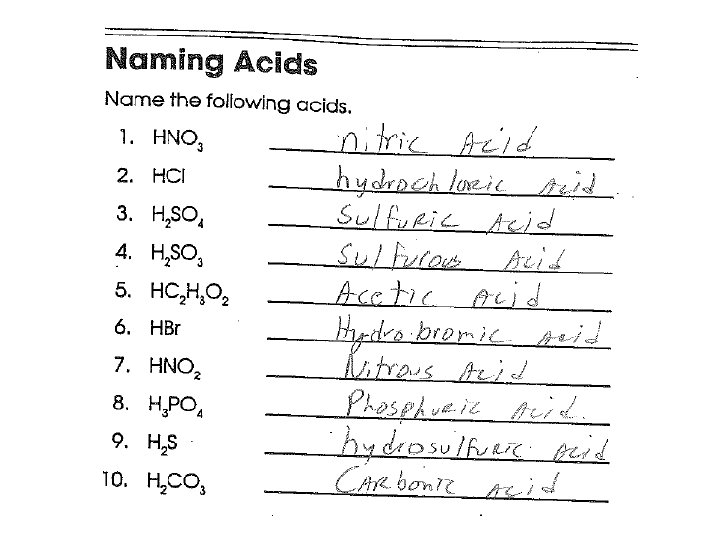 Naming Acids
Name the following acids.
1. HNO₃ nitric Acid
2. HCl hydrochloric Acid
3. H₂SO₄ Sulfuric Acid
4. H₂SO₃ Sulfurous Acid
5. HC₂H₃O₂ Acetic Acid
6. HBr Hydrobromic acid
7. HNO₂ Nitrous Acid
8. H₃PO₄ Phosphuric Acid.
9. H₂S hydrosulfuric Acid
10. H₂CO₃ CARbonic Acid